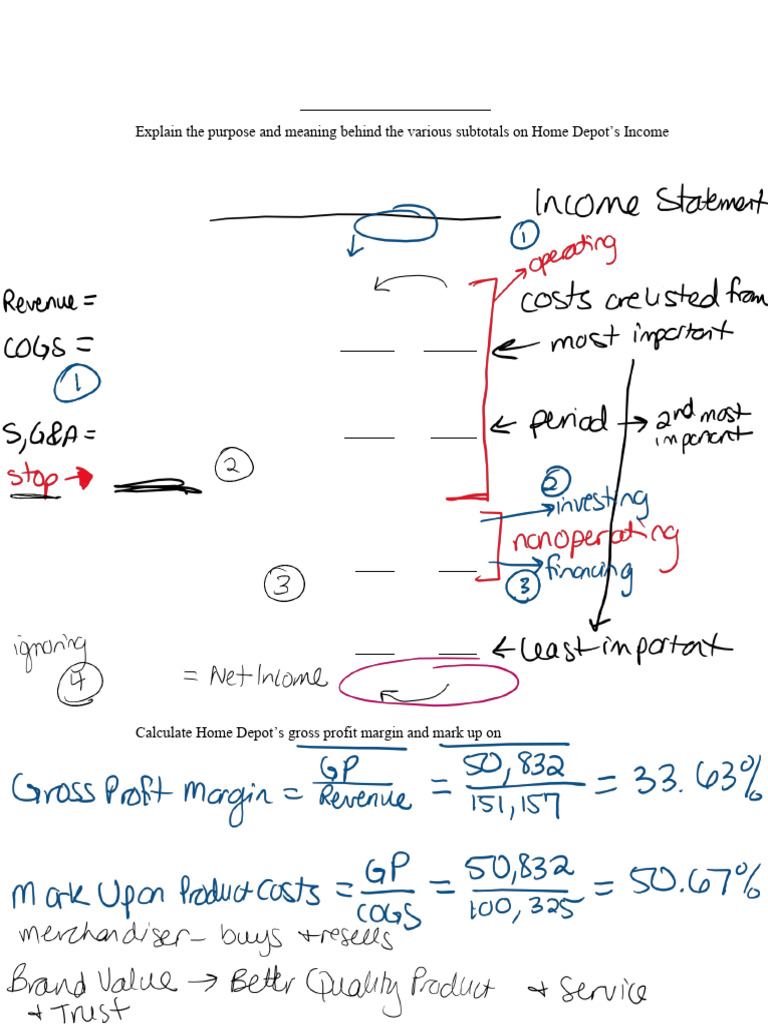 Explain the purpose and meaning behind the various subtotals on Home Depot's Income
Income Statement
1
operating
Revenue =
costs are listed from
COGS =
most important
1
S,G&A =
period → 2nd most important
stop →
2
2
investing
nonoperating
3
financing
3
ignoring
least important
4
= Net Income
Calculate Home Depot's gross profit margin and mark up on
Gross Profit Margin = GP / Revenue = 50,832 / 151,157 = 33.63%
Mark Up on Product Costs = GP / COGS = 50,832 / 100,325 = 50.67%
merchandiser - buys + resells
Brand Value → Better Quality Product + Service
+ Trust